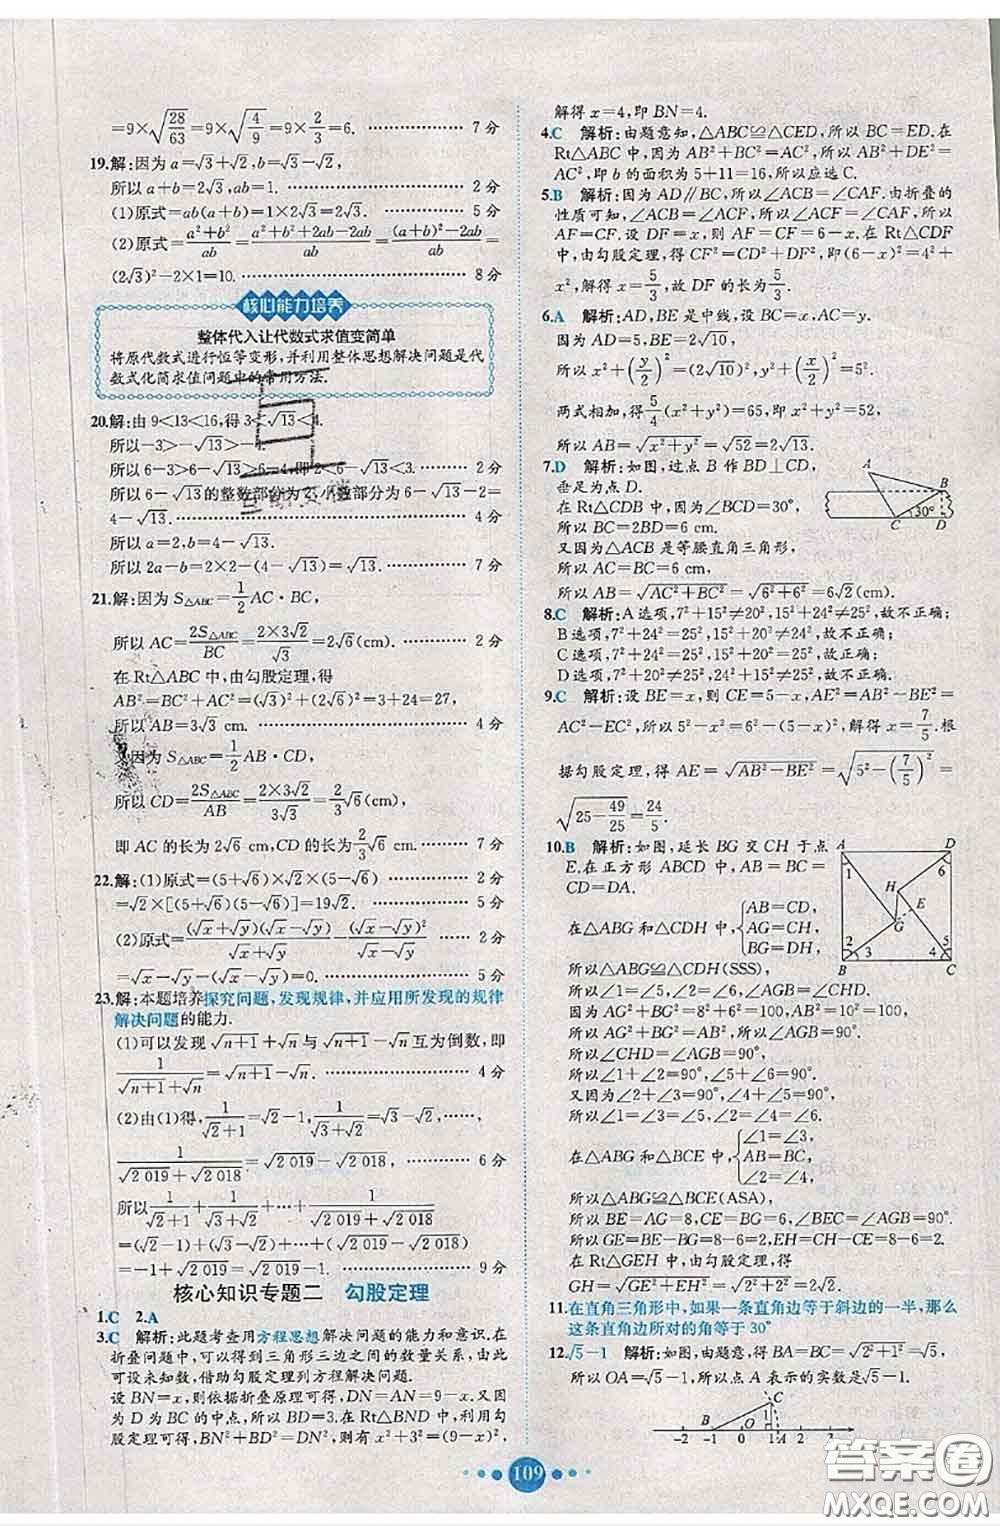 =9×√(28/63)=9×√(4/9)=9×2/3=6. ……………… 7分
19.解:因为a=√3+√2,b=√3-√2,
所以a+b=2√3,ab=1. ……………… 2分
(1)原式=ab(a+b)=1×2√3=2√3. ……………… 5分
(2)原式=(a²+b²)/ab=(a²+b²+2ab-2ab)/ab=((a+b)²-2ab)/ab=
(2√3)²-2×1=10. ……………… 8分
核心能力培养
整体代入让代数式求值变简单
将原代数式进行恒等变形,并利用整体思想解决问题是代
数式化简求值问题中的常用方法.
20.解:由9<13<16,得3<√13<4.
所以-3>-√13>-4.
所以6-3>6-√13>6-4,即2<6-√13<3. ……… 2分
所以6-√13的整数部分为2,小数部分为6-√13-2=
4-√13. ……………… 4分
所以a=2,b=4-√13.
所以2a-b=2×2-(4-√13)=√13. ……… 7分
21.解:因为S△ABC=1/2 AC·BC,
所以AC=2S△ABC/BC=(2×3√2)/√3=2√6(cm). ……… 2分
在Rt△ABC中,由勾股定理,得
AB²=BC²+AC²=(√3)²+(2√6)²=3+24=27,
所以AB=3√3 cm. ……………… 4分
因为S△ABC=1/2 AB·CD,
所以CD=2S△ABC/AB=(2×3√2)/(3√3)=2/3√6(cm),
即AC的长为2√6 cm,CD的长为2/3√6 cm. ……… 7分
22.解:(1)原式=(5+√6)×√2×(5-√6) ……… 2分
=√2×[(5+√6)(5-√6)]=19√2. ……… 5分
(2)原式=(√x+√y)(√x-√y)/(√x+√y)-(√x-√y)²/(√x-√y) ……… 2分
=√x-√y-(√x-√y)=0. ……… 5分
23.解:本题培养探究问题,发现规律,并应用所发现的规律
解决问题的能力.
(1)可以发现√(n+1)+√n与√(n+1)-√n互为倒数,即
1/(√(n+1)+√n)=√(n+1)-√n. ……… 4分
(2)由(1)得,1/(√2+1)=√2-1,1/(√3+√2)=√3-√2,……,
1/(√2 019+√2 018)=√2 019-√2 018, ……… 6分
所以1/(√2+1)+1/(√3+√2)+…+1/(√2 019+√2 018)
=(√2-1)+(√3-√2)+…+(√2 019-√2 018)
=-1+√2 019=√2 019-1. ……… 9分
核心知识专题二 勾股定理
1.C 2.A
3.C 解析:此题考查用方程思想解决问题的能力和意识.在
折叠问题中,可以得到三角形三边之间的数量关系,由此
可设未知数,借助勾股定理列方程解决问题.
设BN=x,则依据折叠原理可得,DN=AN=9-x.又因
为D为BC的中点,所以BD=3.在Rt△BND中,利用勾
股定理可得,BN²+BD²=DN²,则有x²+3²=(9-x)²,
解得x=4,即BN=4.
4.C 解析:由题意知,△ABC≌△CED,所以BC=ED.在
Rt△ABC中,因为AB²+BC²=AC²,所以AB²+DE²=
AC²,即b的面积为5+11=16,所以应选C.
5.B 解析:因为AD∥BC,所以∠ACB=∠CAF.由折叠的
性质可知,∠ACB=∠ACF,所以∠ACF=∠CAF,所以
AF=CF.设DF=x,则AF=CF=6-x.在Rt△CDF
中,由勾股定理,得CF²=CD²+DF²,即(6-x)²=4²+
x²,解得x=5/3,故DF的长为5/3.
6.A 解析:AD,BE是中线,设BC=x,AC=y.
因为AD=5,BE=2√10,
所以x²+(y/2)²=(2√10)²,y²+(x/2)²=5²,
两式相加,得5/4(x²+y²)=65,即x²+y²=52,
所以AB=√(x²+y²)=√52=2√13.
7.D 解析:如图,过点B作BD⊥CD,
垂足为点D.
在Rt△CDB中,因为∠BCD=30°,
所以BC=2BD=6 cm.
又因为△ACB是等腰直角三角形,
所以AC=BC=6 cm.
所以AB=√(AC²+BC²)=√(6²+6²)=6√2(cm).
A B C D 30°
8.C 解析:A选项,7²+15²≠20²,15²+24²≠25²,故不正确;
B选项,7²+24²=25²,15²+20²≠24²,故不正确;
C选项,7²+24²=25²,15²+20²=25²,故正确;
D选项,7²+20²≠25²,24²+15²≠25²,故不正确.
9.C 解析:设BE=x,则CE=5-x,AE²=AB²-BE²=
AC²-EC²,所以5²-x²=6²-(5-x)²,解得x=7/5.根
据勾股定理,得AE=√(AB²-BE²)=√(5²-(7/5)²)=
√(25-49/25)=24/5.
10.B 解析:如图,延长BG交CH于点
E,在正方形ABCD中,AB=BC=
CD=DA.
在△ABG和△CDH中,{AB=CD, AG=CH, BG=DH,
A D H E G B C 1 2 3 4 5 6
所以△ABG≌△CDH(SSS),
所以∠1=∠5,∠2=∠6,∠AGB=∠CHD.
因为AG²+BG²=8²+6²=100,AB²=10²=100,
所以AG²+BG²=AB²,所以∠AGB=90°,
所以∠CHD=∠AGB=90°,
所以∠1+∠2=90°,∠5+∠6=90°.
又因为∠2+∠3=90°,∠4+∠5=90°,
所以∠1=∠3=∠5,∠2=∠4=∠6.
在△ABG和△BCE中,{∠1=∠3, AB=BC, ∠2=∠4,
所以△ABG≌△BCE(ASA),
所以BE=AG=8,CE=BG=6,∠BEC=∠AGB=90°.
所以GE=BE-BG=8-6=2,EH=CH-CE=8-6=2.
在Rt△GEH中,由勾股定理,得
GH=√(GE²+EH²)=√(2²+2²)=2√2.
11.在直角三角形中,如果一条直角边等于斜边的一半,那么
这条直角边所对的角等于30°
12.√5-1 解析:如图,由题意,得BA=BC=√(2²+1²)=√5,
所以OA=√5-1,所以点A表示的实数是√5-1.
C B O 1 1 A
-2 -1 0 2 3 4
109
答案圈
MXQE.COM